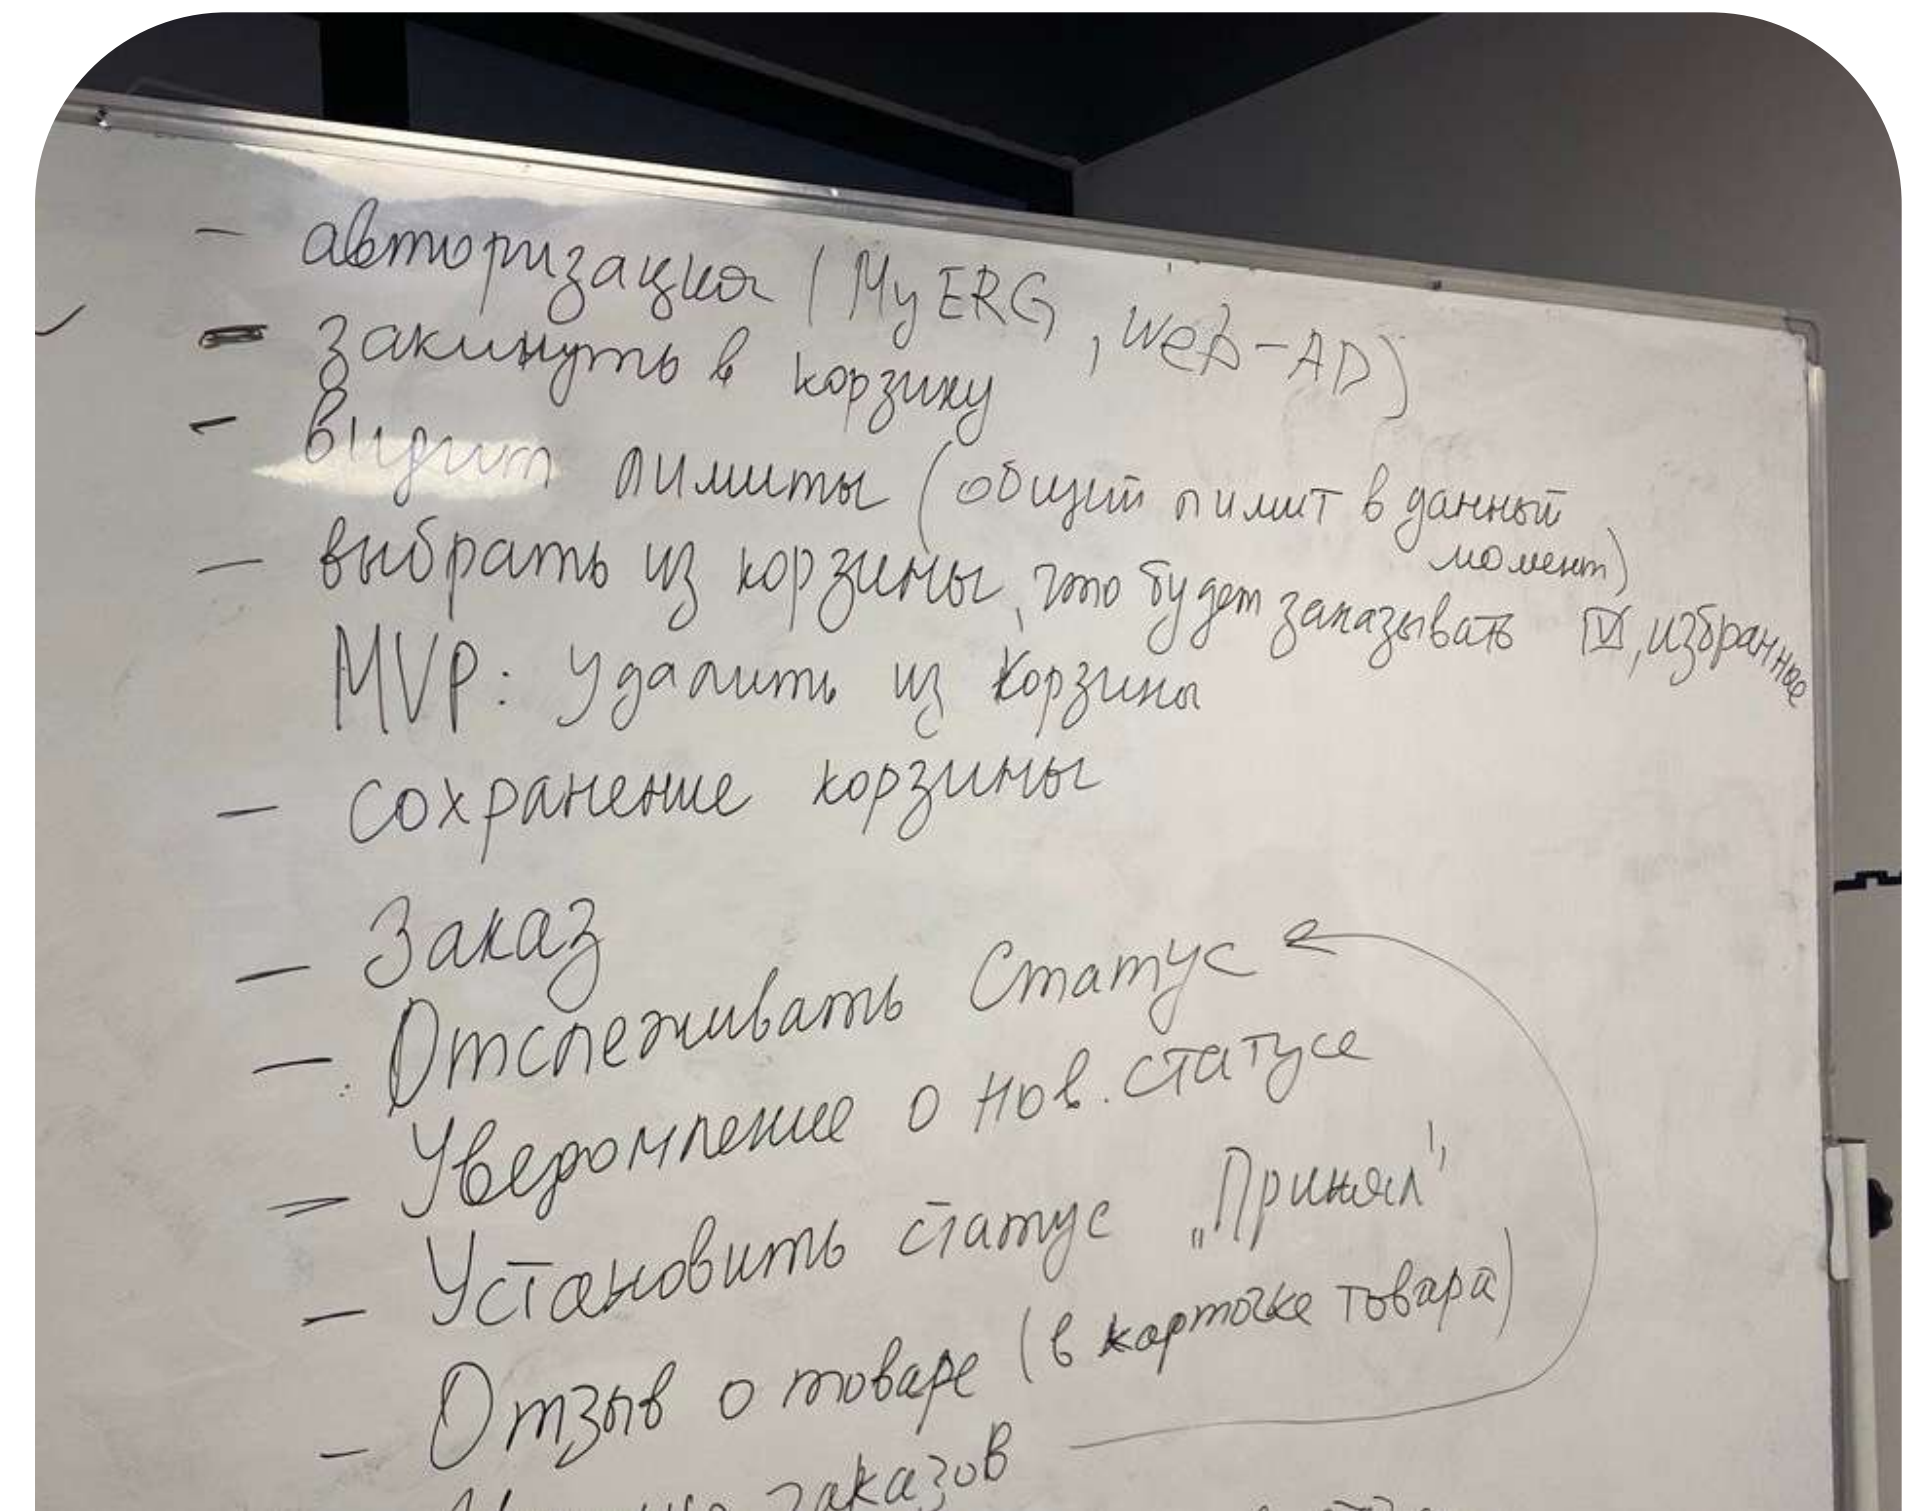 - авторизация (MyERG, web-AD)
- закинуть в корзину
- видит лимиты (общий лимит в данный
момент)
- выбрать из корзины, что будет заказывать ☑, избранное
MVP: удалить из корзины
- сохранение корзины
- Заказ
- Отслеживать Статус
- Уведомление о нов. статусе
- Установить статус „Принял"
- Отзыв о товаре (в карточке товара)
заказов